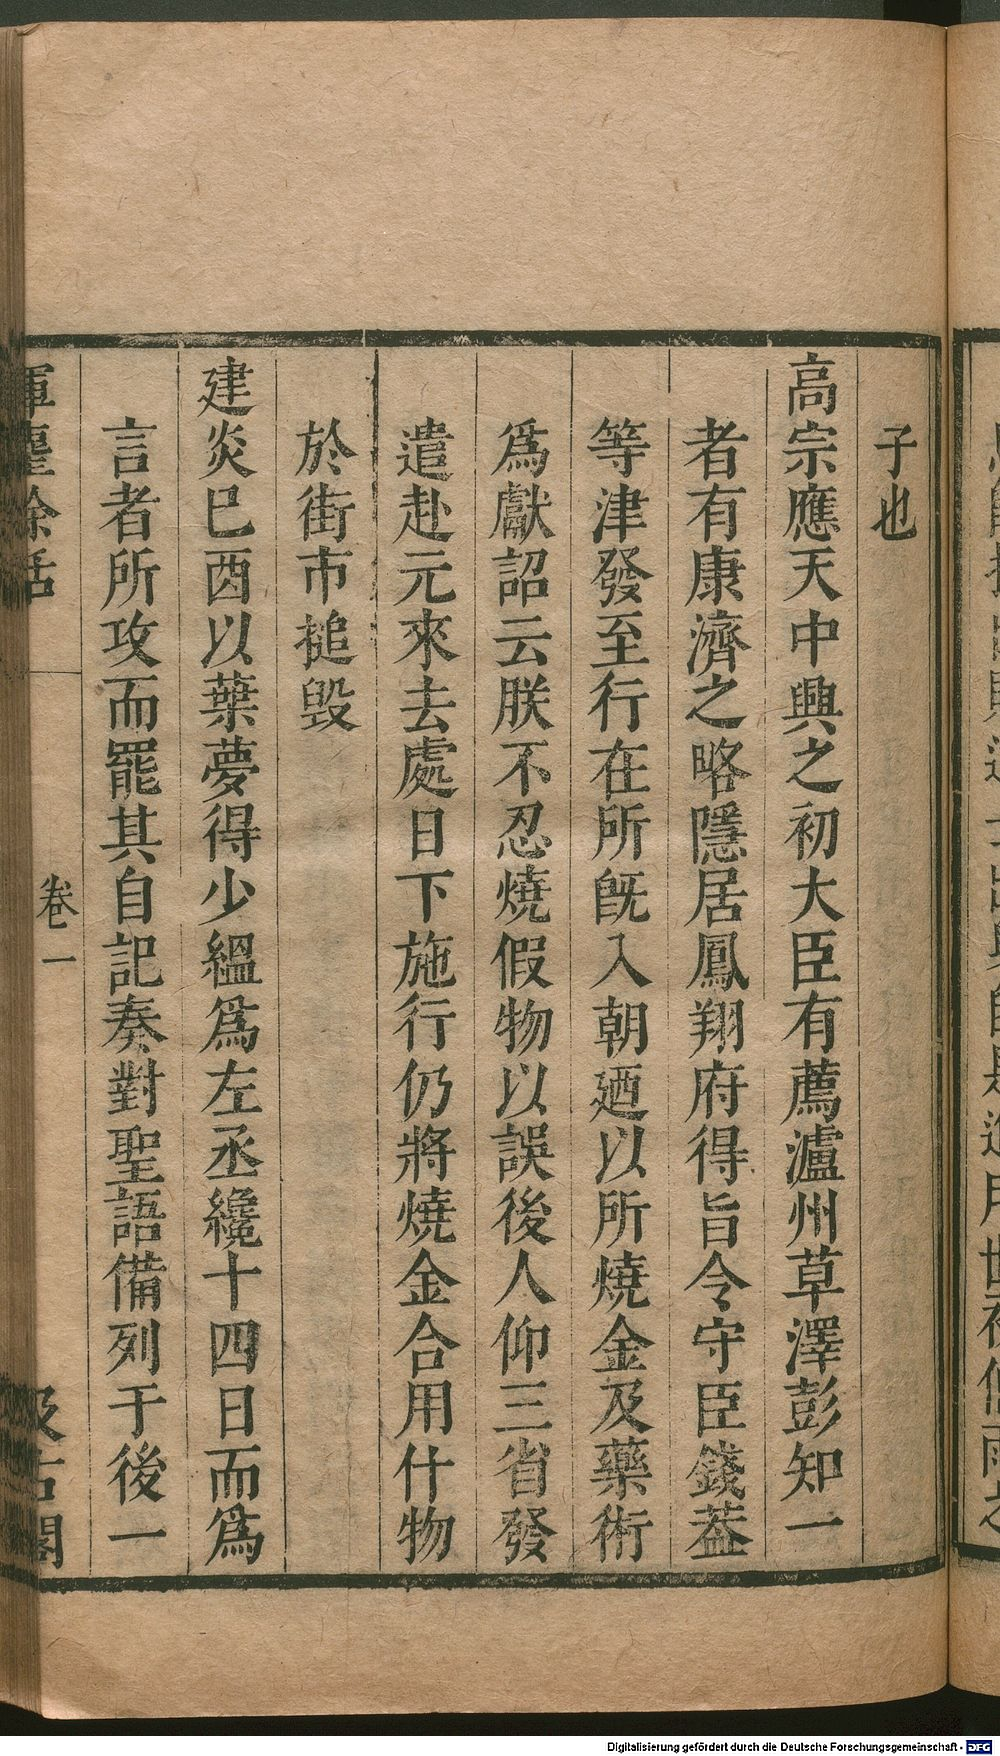 子也
高宗應天中興之初大臣有薦瀘州草澤彭知一
者有康濟之略隱居鳳翔府得旨令守臣錢葢
等津發至行在所旣入朝廼以所燒金及藥術
爲獻詔云朕不忍燒假物以誤後人仰三省發
遣赴元來去處日下施行仍將燒金合用什物
於街市搥毀
建炎巳酉以葉夢得少緼爲左丞纔十四日而爲
言者所攻而罷其自記奏對聖語備列于後一
揮塵餘話
卷一
汲古閣
Digitalisierung gefördert durch die Deutsche Forschungsgemeinschaft - DFG